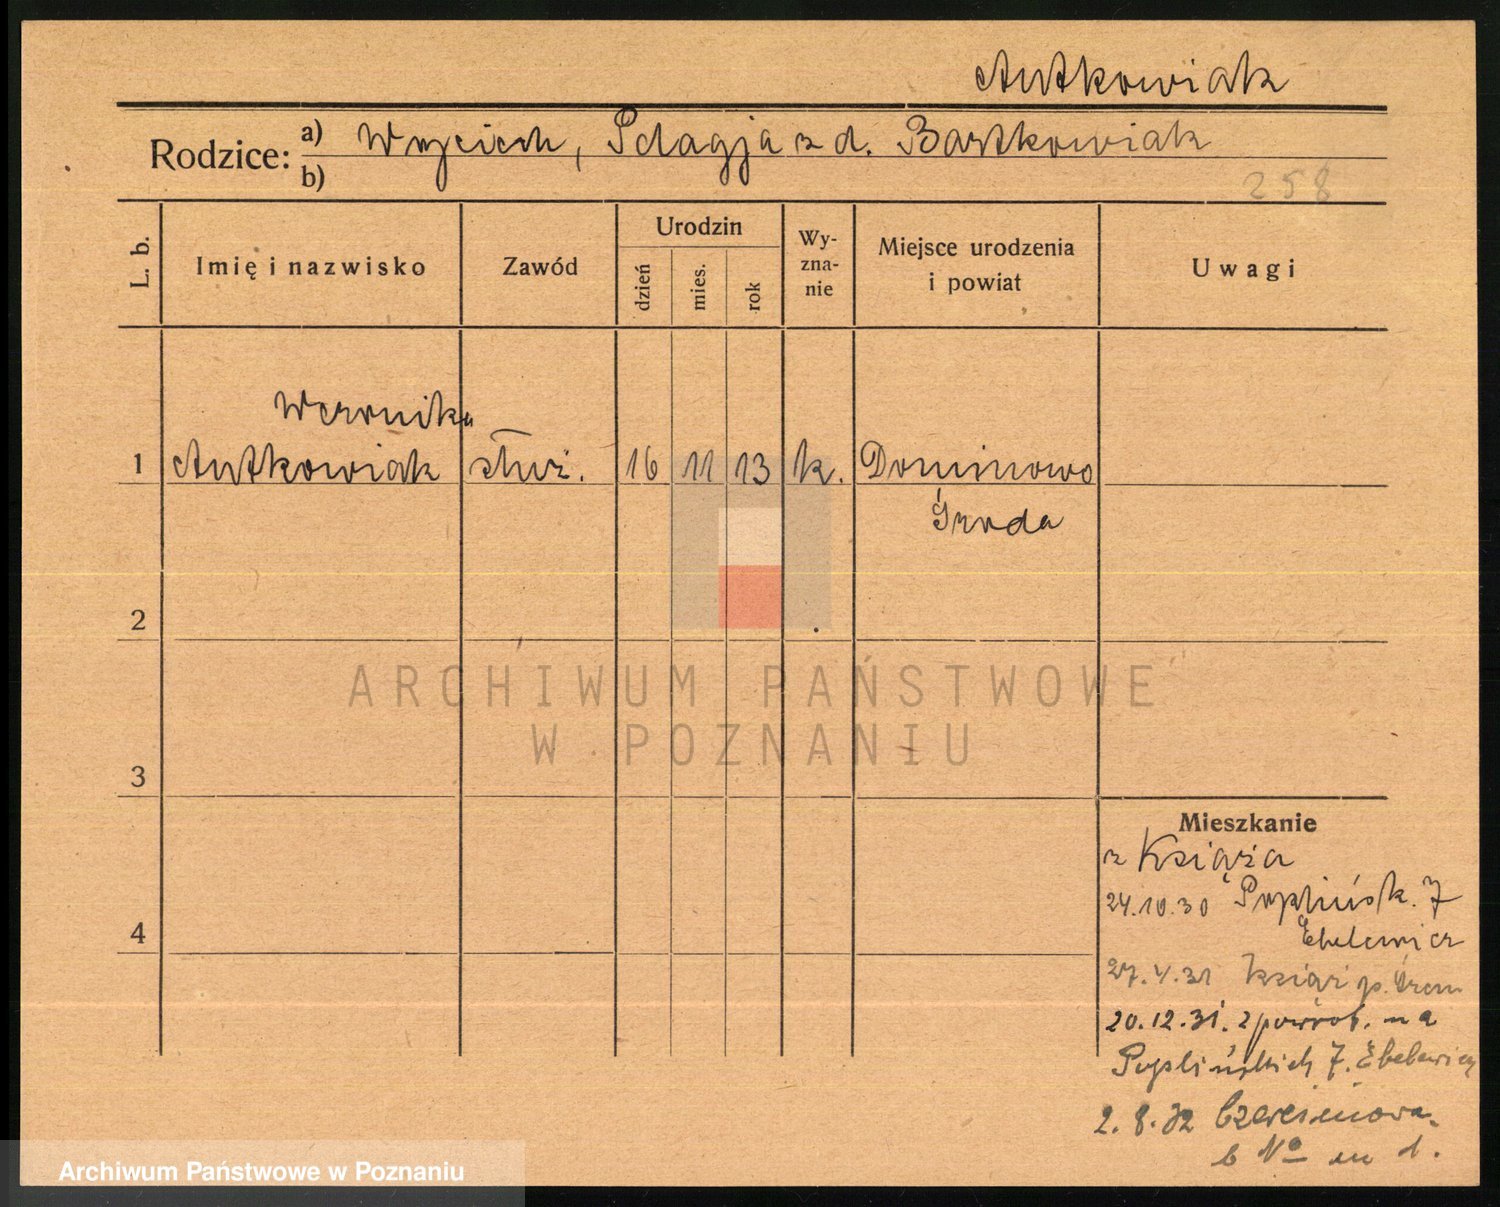 Antkowiak
Rodzice: a) Wojciech, Pelagja z d. Bartkowiak
b)
258
L. b.
Imię i nazwisko
Zawód
Urodzin
dzień
mies.
rok
Wy-
zna-
nie
Miejsce urodzenia
i powiat
Uwagi
Weronika
1 Antkowiak służ. 16 11 13 k. Dominowo
Środa
2
ARCHIWUM PAŃSTWOWE
W POZNANIU
3
Mieszkanie
z Książa
24.10.30 Poplińsk. 7
4
Ebelewicz
27.4.31 Książ p. Śrem
20.12.31. z powrot. na
Poplińskich 7. Ebelewicz
2.8.32
Archiwum Państwowe w Poznaniu